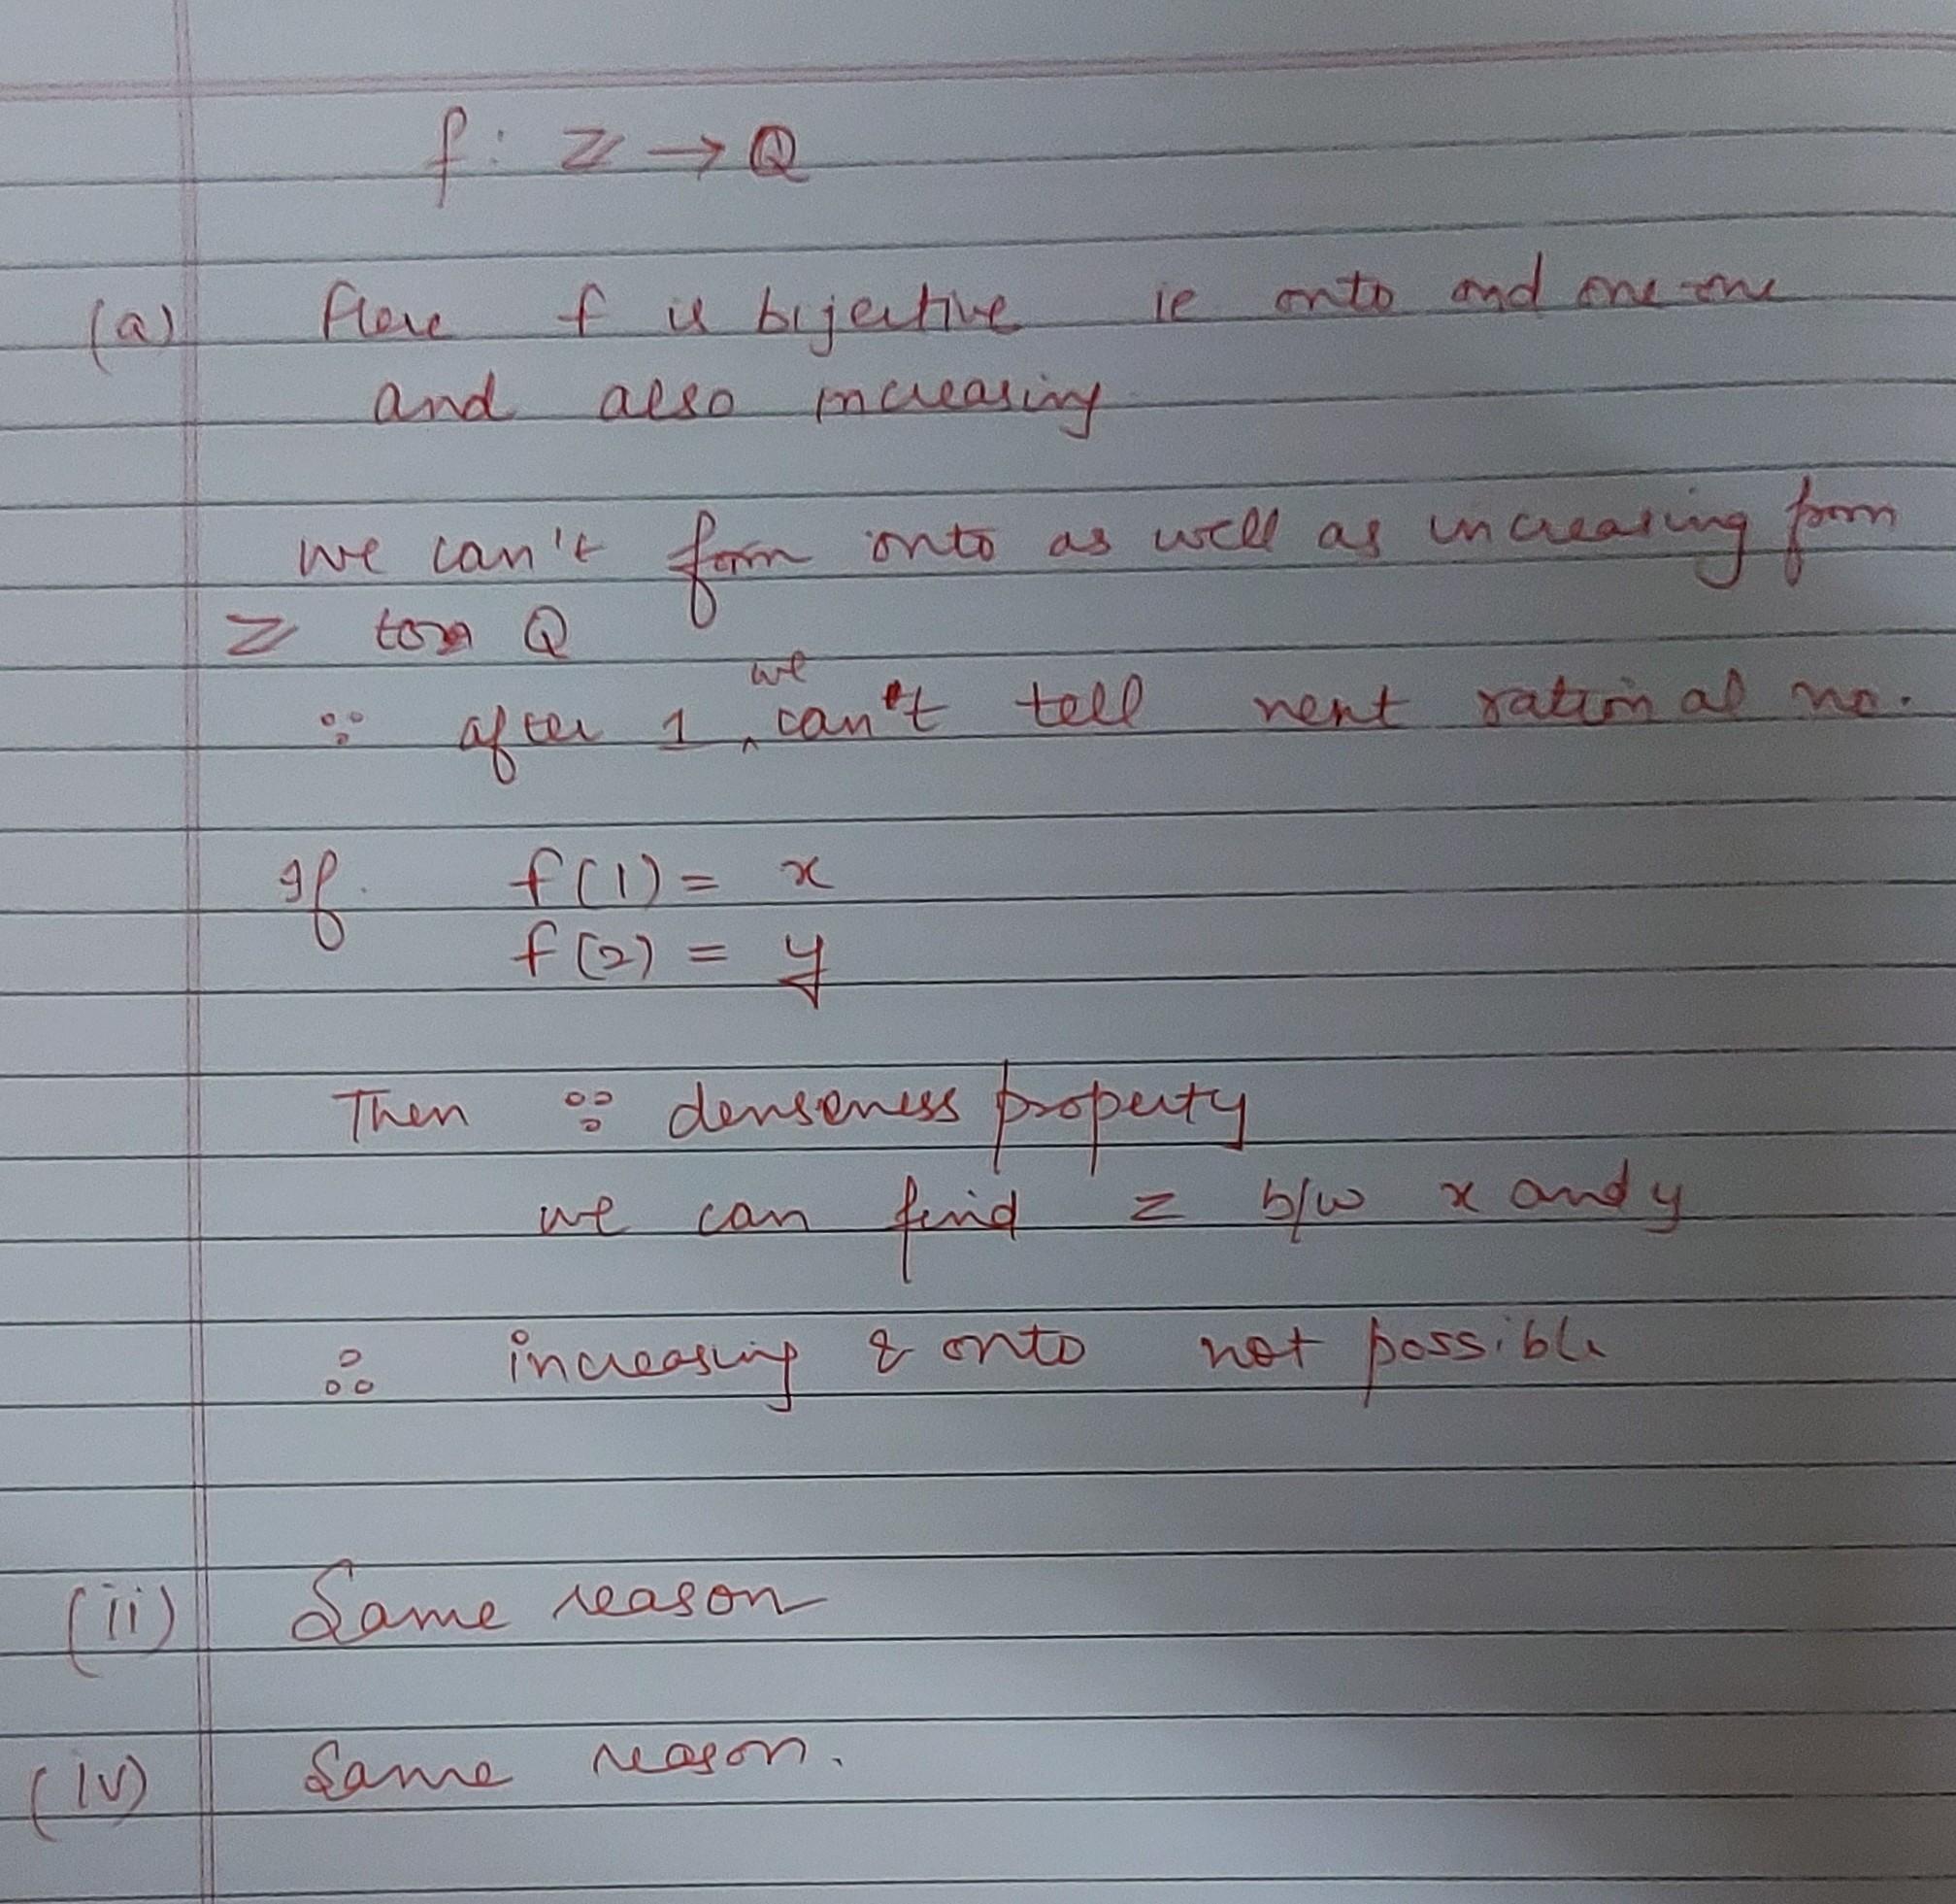 f: Z → Q
(a) Here f is bijective ie onto and one-one
and also increasing
we can't form onto as well as increasing from
Z to Q
∵ after 1, we can't tell next rational no.
If f(1) = x
f(2) = y
Then ∵ denseness property
we can find z b/w x and y
∴ increasing & onto not possible
(ii) Same reason
(iv) Same reason.